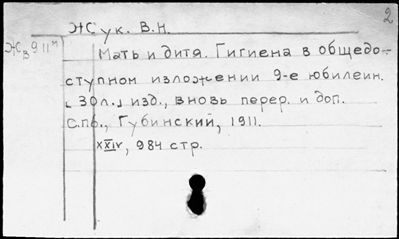 2
Жук. В.Н.
Ж в 911м
Мать и дитя. Гигиена в общедо-
ступном изложении 9-е юбилейн.
[30 л.] изд., вновь перер. и доп.
С.пб., Губинский, 1911.
XXIV, 984 стр.